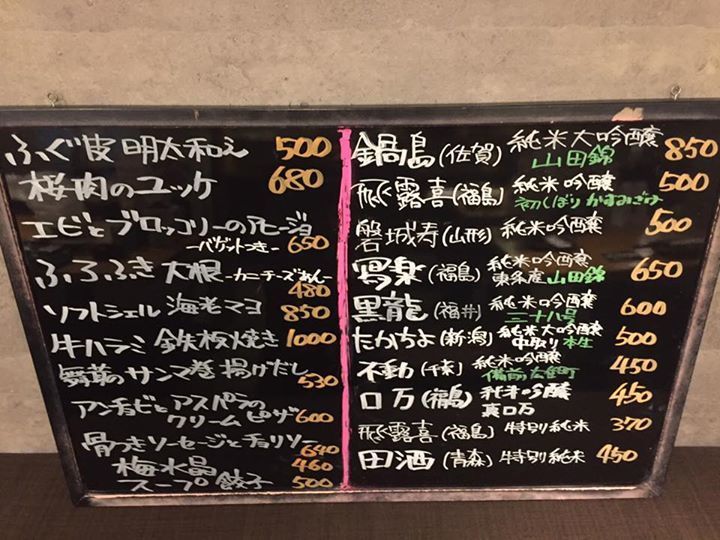 ふぐ皮 明太和え 500
桜肉のユッケ 680
エビとブロッコリーのアヒージョ
-バゲットつき- 650
ふろふき 大根 -カニチーズあん-
480
ソフトシェル 海老マヨ 850
牛ハラミ 鉄板焼き 1000
舞茸のサンマ巻 揚げだし
530
アンチョビとアスパラの
クリームピザ 600
骨つきソーセージとチョリソー
640
梅水晶 460
スープ餃子 500
鍋島 (佐賀) 純米大吟醸
山田錦 850
飛露喜 (福島) 純米吟醸
初しぼり かすみざけ 500
磐城寿 (山形) 純米吟醸 500
寫楽 (福島) 純米吟醸
東条産山田錦 650
黒龍 (福井) 純米吟醸
三十八号 600
たかちよ (新潟) 純米大吟醸
中取り 本生 500
不動 (千葉) 純米吟醸
備前雄町 450
口万 (福島) 純米吟醸
真口万 450
飛露喜 (福島) 特別純米 370
田酒 (青森) 特別純米 450